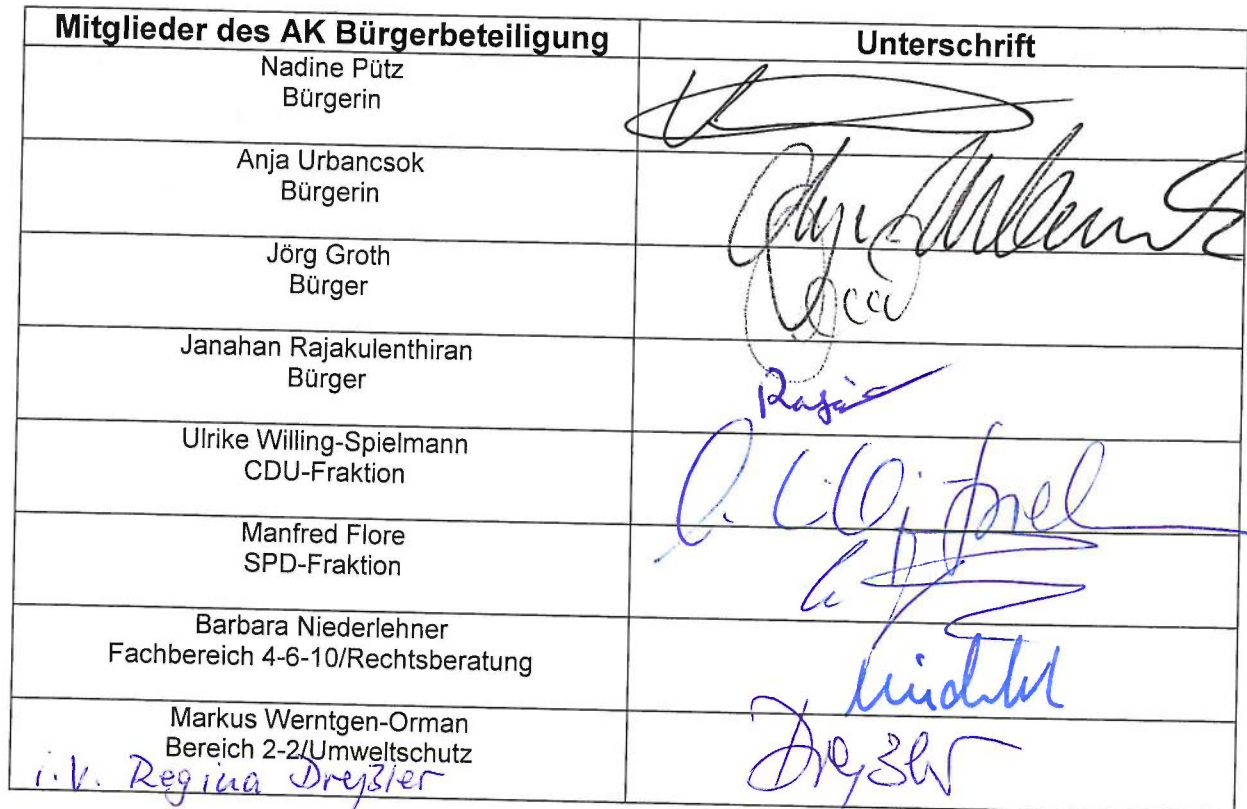 Mitglieder des AK Bürgerbeteiligung Unterschrift
Nadine Pütz
Bürgerin
Anja Urbancsok
Bürgerin
Jörg Groth
Bürger
Janahan Rajakulenthiran
Bürger
Ulrike Willing-Spielmann
CDU-Fraktion
Manfred Flore
SPD-Fraktion
Barbara Niederlehner
Fachbereich 4-6-10/Rechtsberatung
Markus Werntgen-Orman
Bereich 2-2/Umweltschutz
i.V. Regina Dreßler
Dreßler